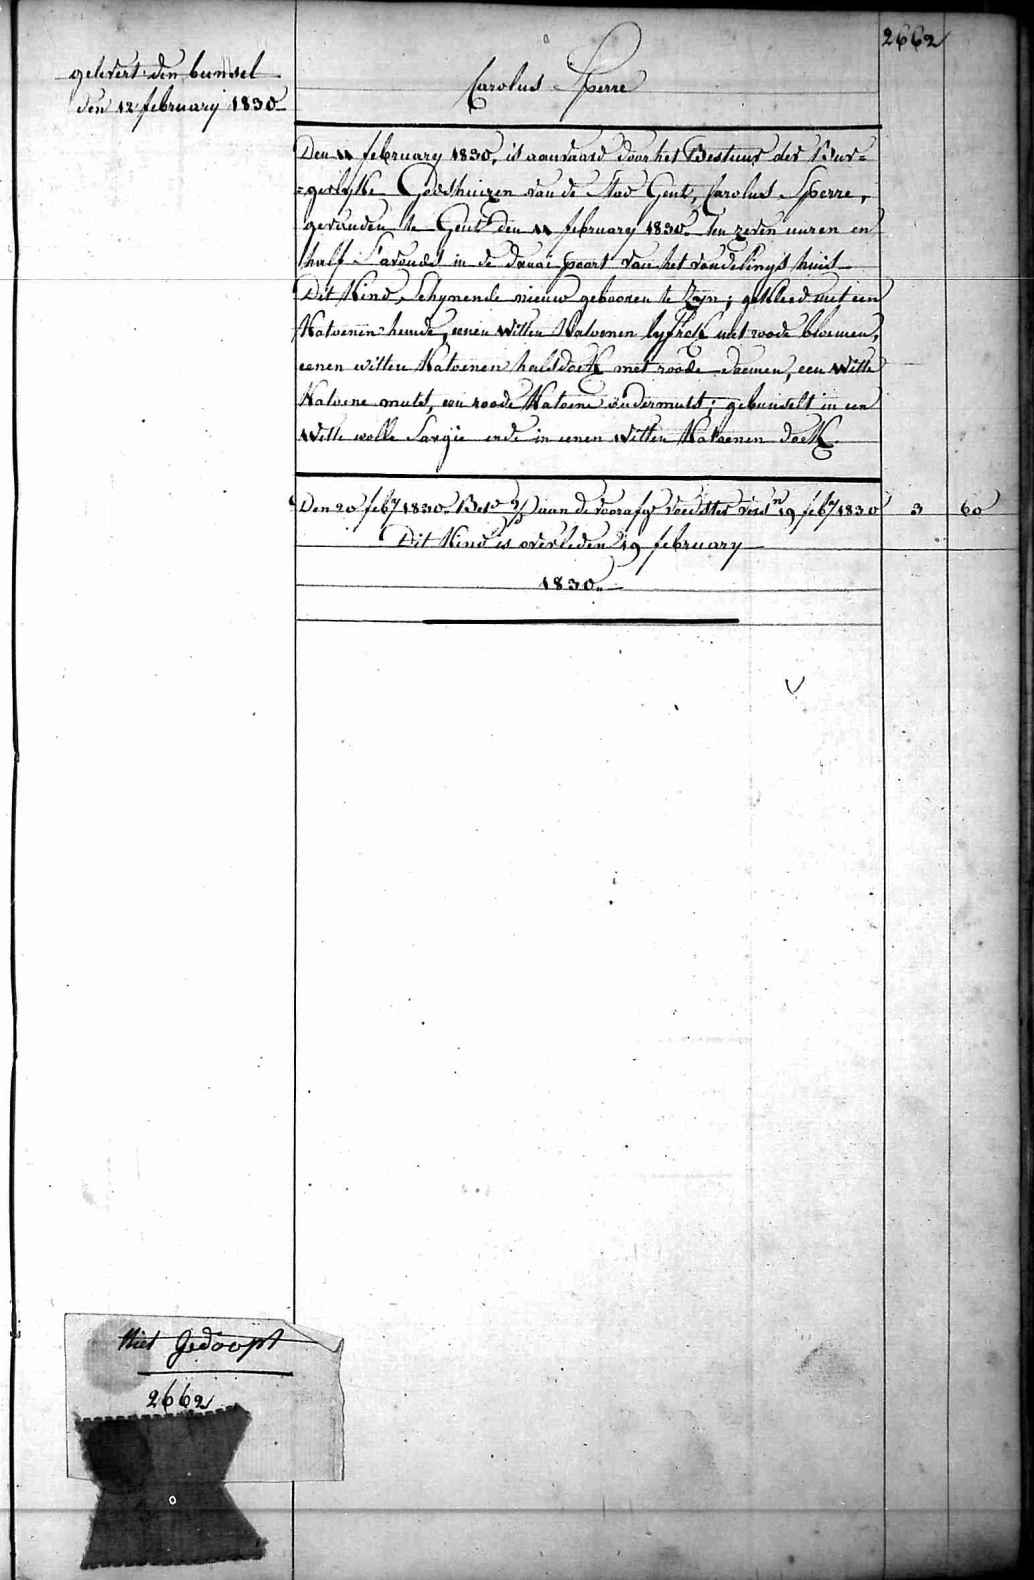 2662
gelevert den bunsel
den 12 february 1830
Carolus Sperre
Den 11 february 1830, is aanvaard door het Bestuur der Bur=
=gerlyke Godshuizen van de Stad Gent, Carolus Sperre,
gevonden te Gent den 11 february 1830. ten zeven uuren en
half s'avonds in de draaĩ poort van het vondelings huis
Dit Kind, schynende nieuw gebooren te zyn; gekleed met een
Katoenen hemde, eenen witten Katoenen lyfrok met roode bloemen,
eenen witten Katoenen halsdoek met roode daemen, een witte
Katoene muts, een roode Katoene ondermuts; gebunselt in een
witte wolle Sargie ende in eenen witten Katoenen doek.
Den 20 feby 1830. Betd aan de voorafge voedster 19 feby 1830 3 60
Dit Kind is overleden 19 february
1830.
Niet gedoopt
2662